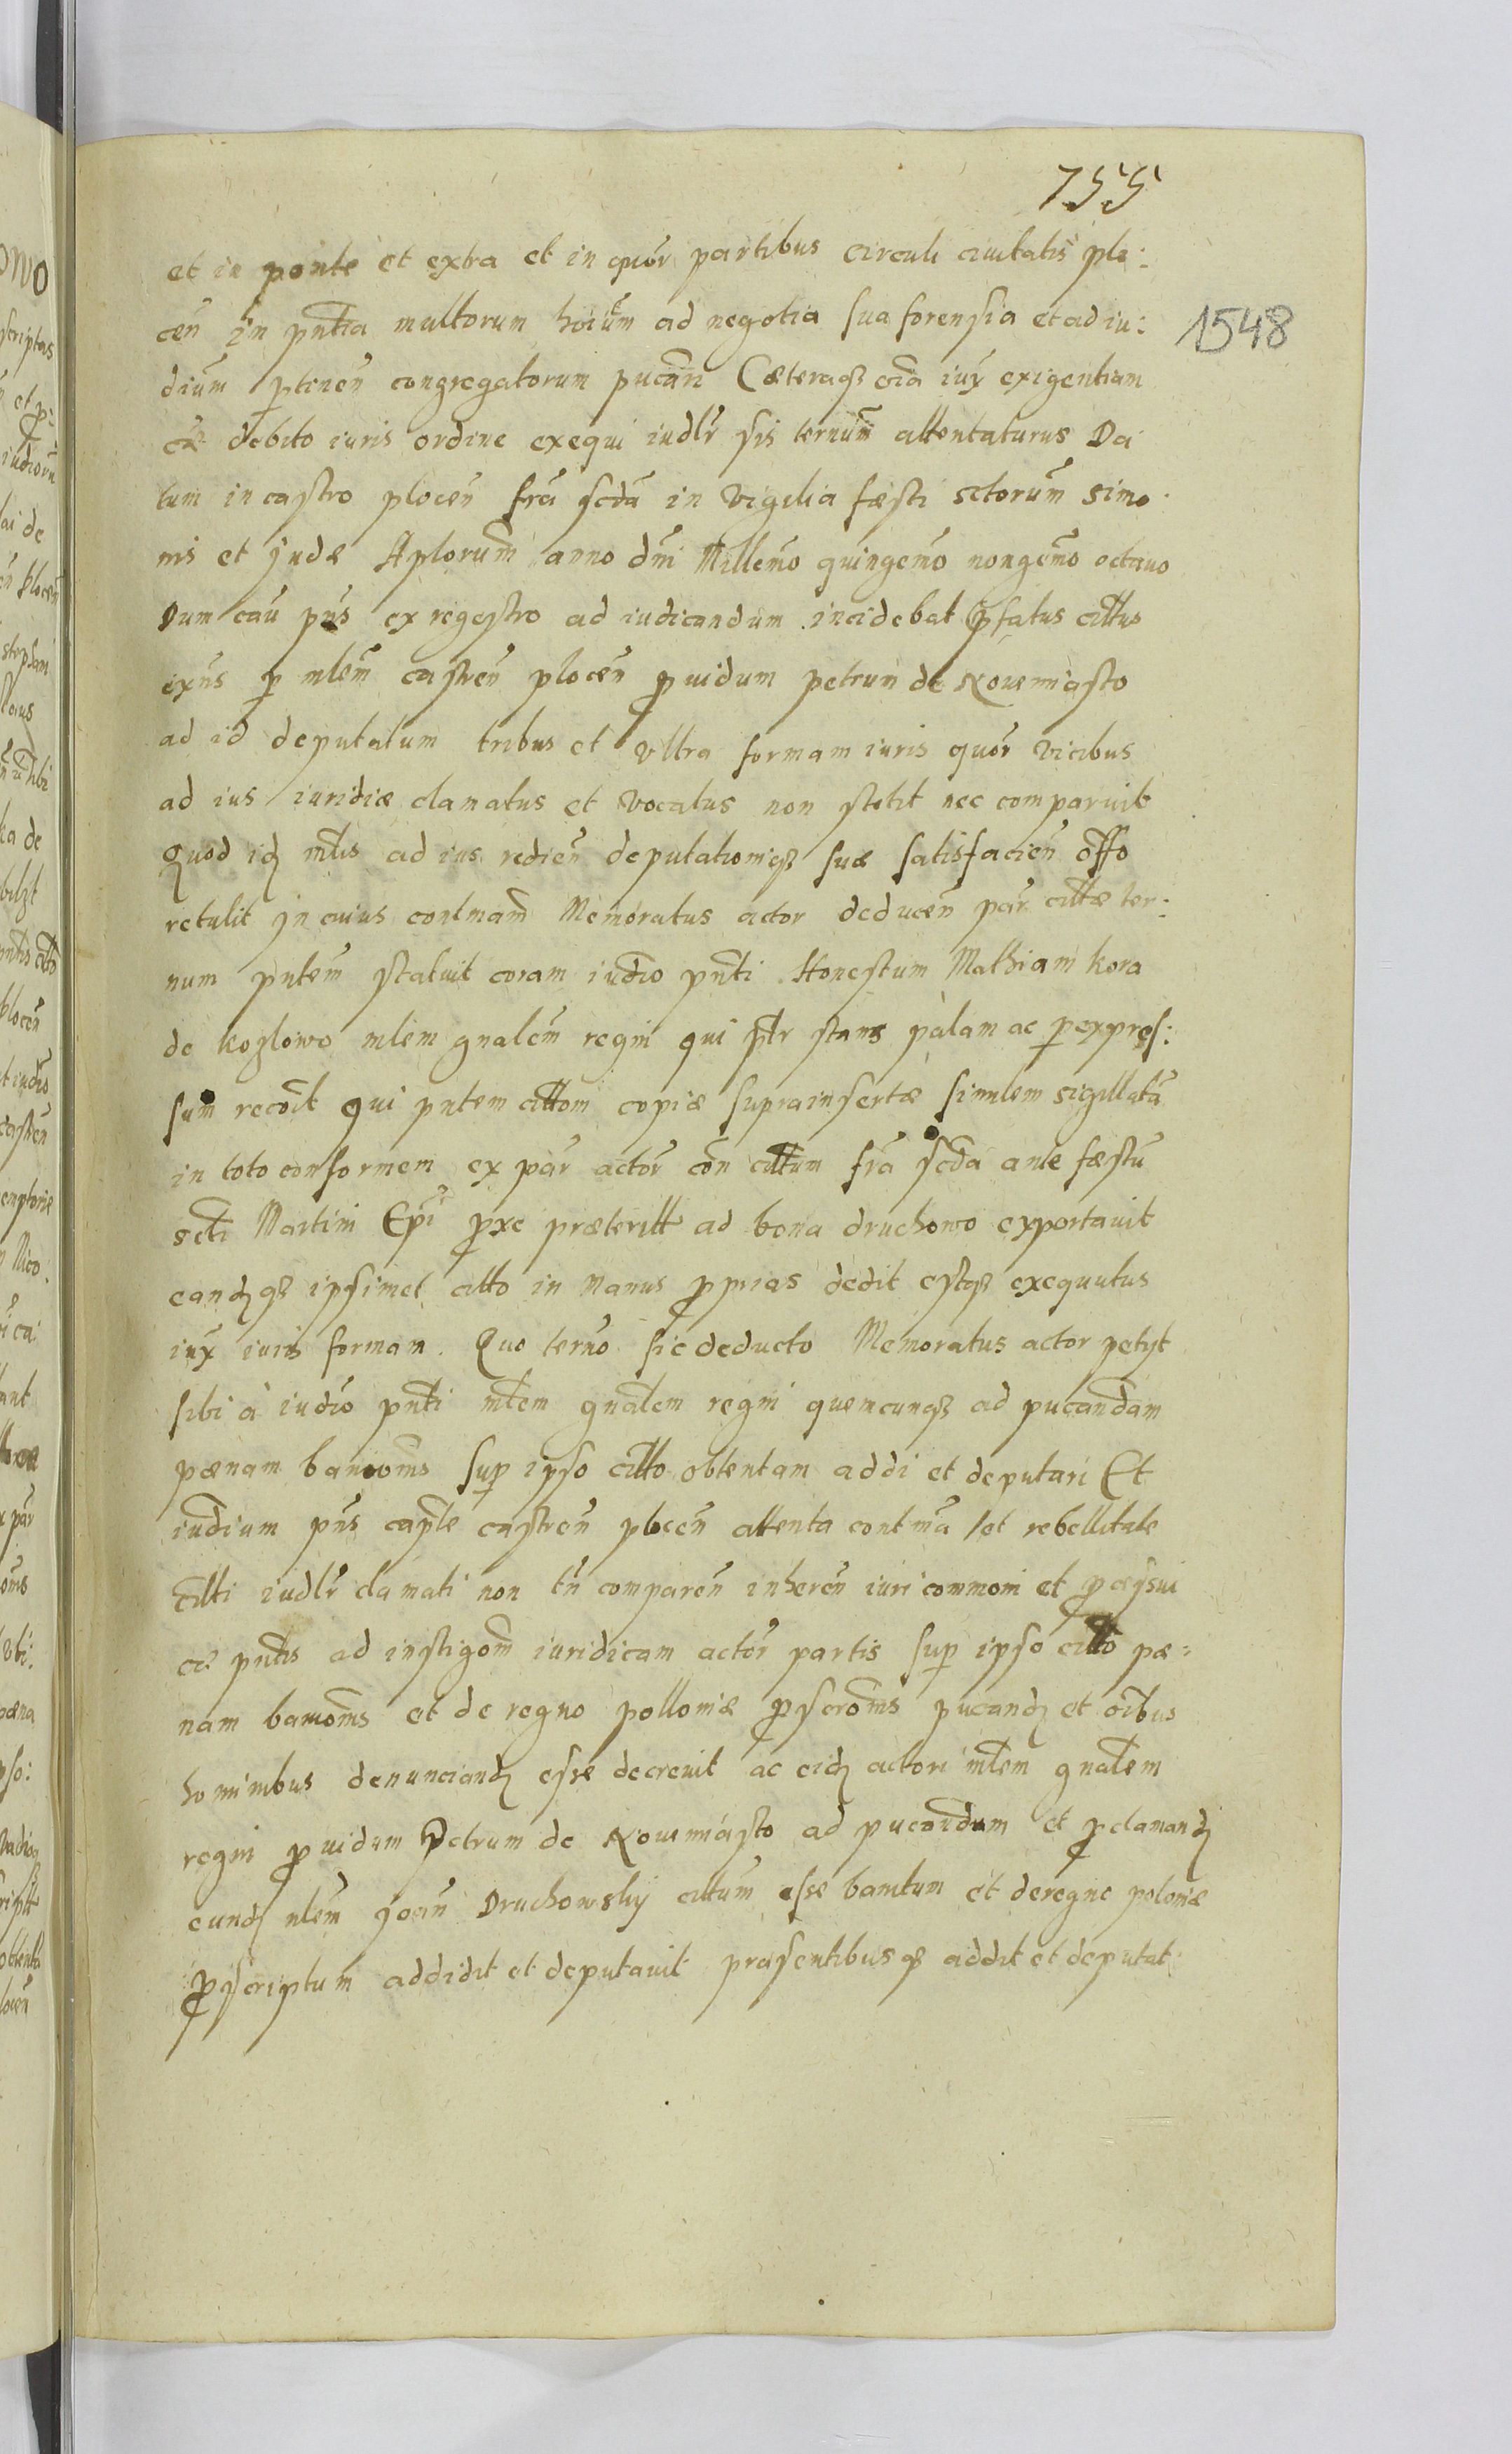 755
et in ponte et extra et in quor partibus circuli ciuitatis plo:
cen in pntia multorum hoium ad negotia sua forensia et ad iu: 1548
dium ptinen congregatorum pucari Cæteraqȝ oia iux exigentiam
debito iuris ordine exequi iudlr sis ternum attentaturus Da
tum in castro plocen fria scda in vigilia fæsti sctorum simo
nis et Judæ Aplorum anno dni Millemo quingemo nongemo octauo
Dum cau pns ex regestro ad iudicandum incidebat pfatus cittus
p mlem castren plocen prouidum petrum de Nouemiasto
ad id deputatum tribus et vltra formam iuris quor vicibus
ad ius iuridice clamatus et vocatus non stetit nec comparuit
Quod idȝ mlis ad ius redien deputationiqȝ suæ satisfacien offo
retulit in cuius contmam Memoratus actor deducen par cittæ ter:
num pntem statuit coram iudio pnti Honestum Mathiam kora
de kozlowo mlem gnalem regni qui ptr stans palam ac p expres:
sum recoit qui pntem cittom copiæ suprainsertæ simulem sigillata
in toto conformem ex par actor con cittum fria scda ante fæstu
scti Martini Epi pxe præteritt ad bona druchowo exportauit
eandȝqȝ ipsimet citto in manus pprias dedit estqȝ exequutus
iux iuris formam. Quo terno sic deducto Memoratus actor petyt
sibi à iudio pnti mlem gnalem regni quemcunqȝ ad pucandam
pænam banioms sup ipso citto obtentam addi et deputari Et
iudium pns caple castren plocen attenta contma et rebellitate
citti iudlr clamati non tn comparen inheren iuri communi et
pntis ad instigom iuridicam actor partis sup ipso citto pæ:
nam banioms et de regno polloniæ pscroms pucandȝ et oibus
hominibus denunciandȝ esse decreuit ac eidȝ actori mlem gnalem
regni prouidum Petrum de Nouemiasto ad pucandum et pclamandȝ
eundȝ nlem Joan Druchowskij cittum esse banitum et de regno poloniæ
pscriptum addidit et deputauit præsentibusqȝ addit et deputat